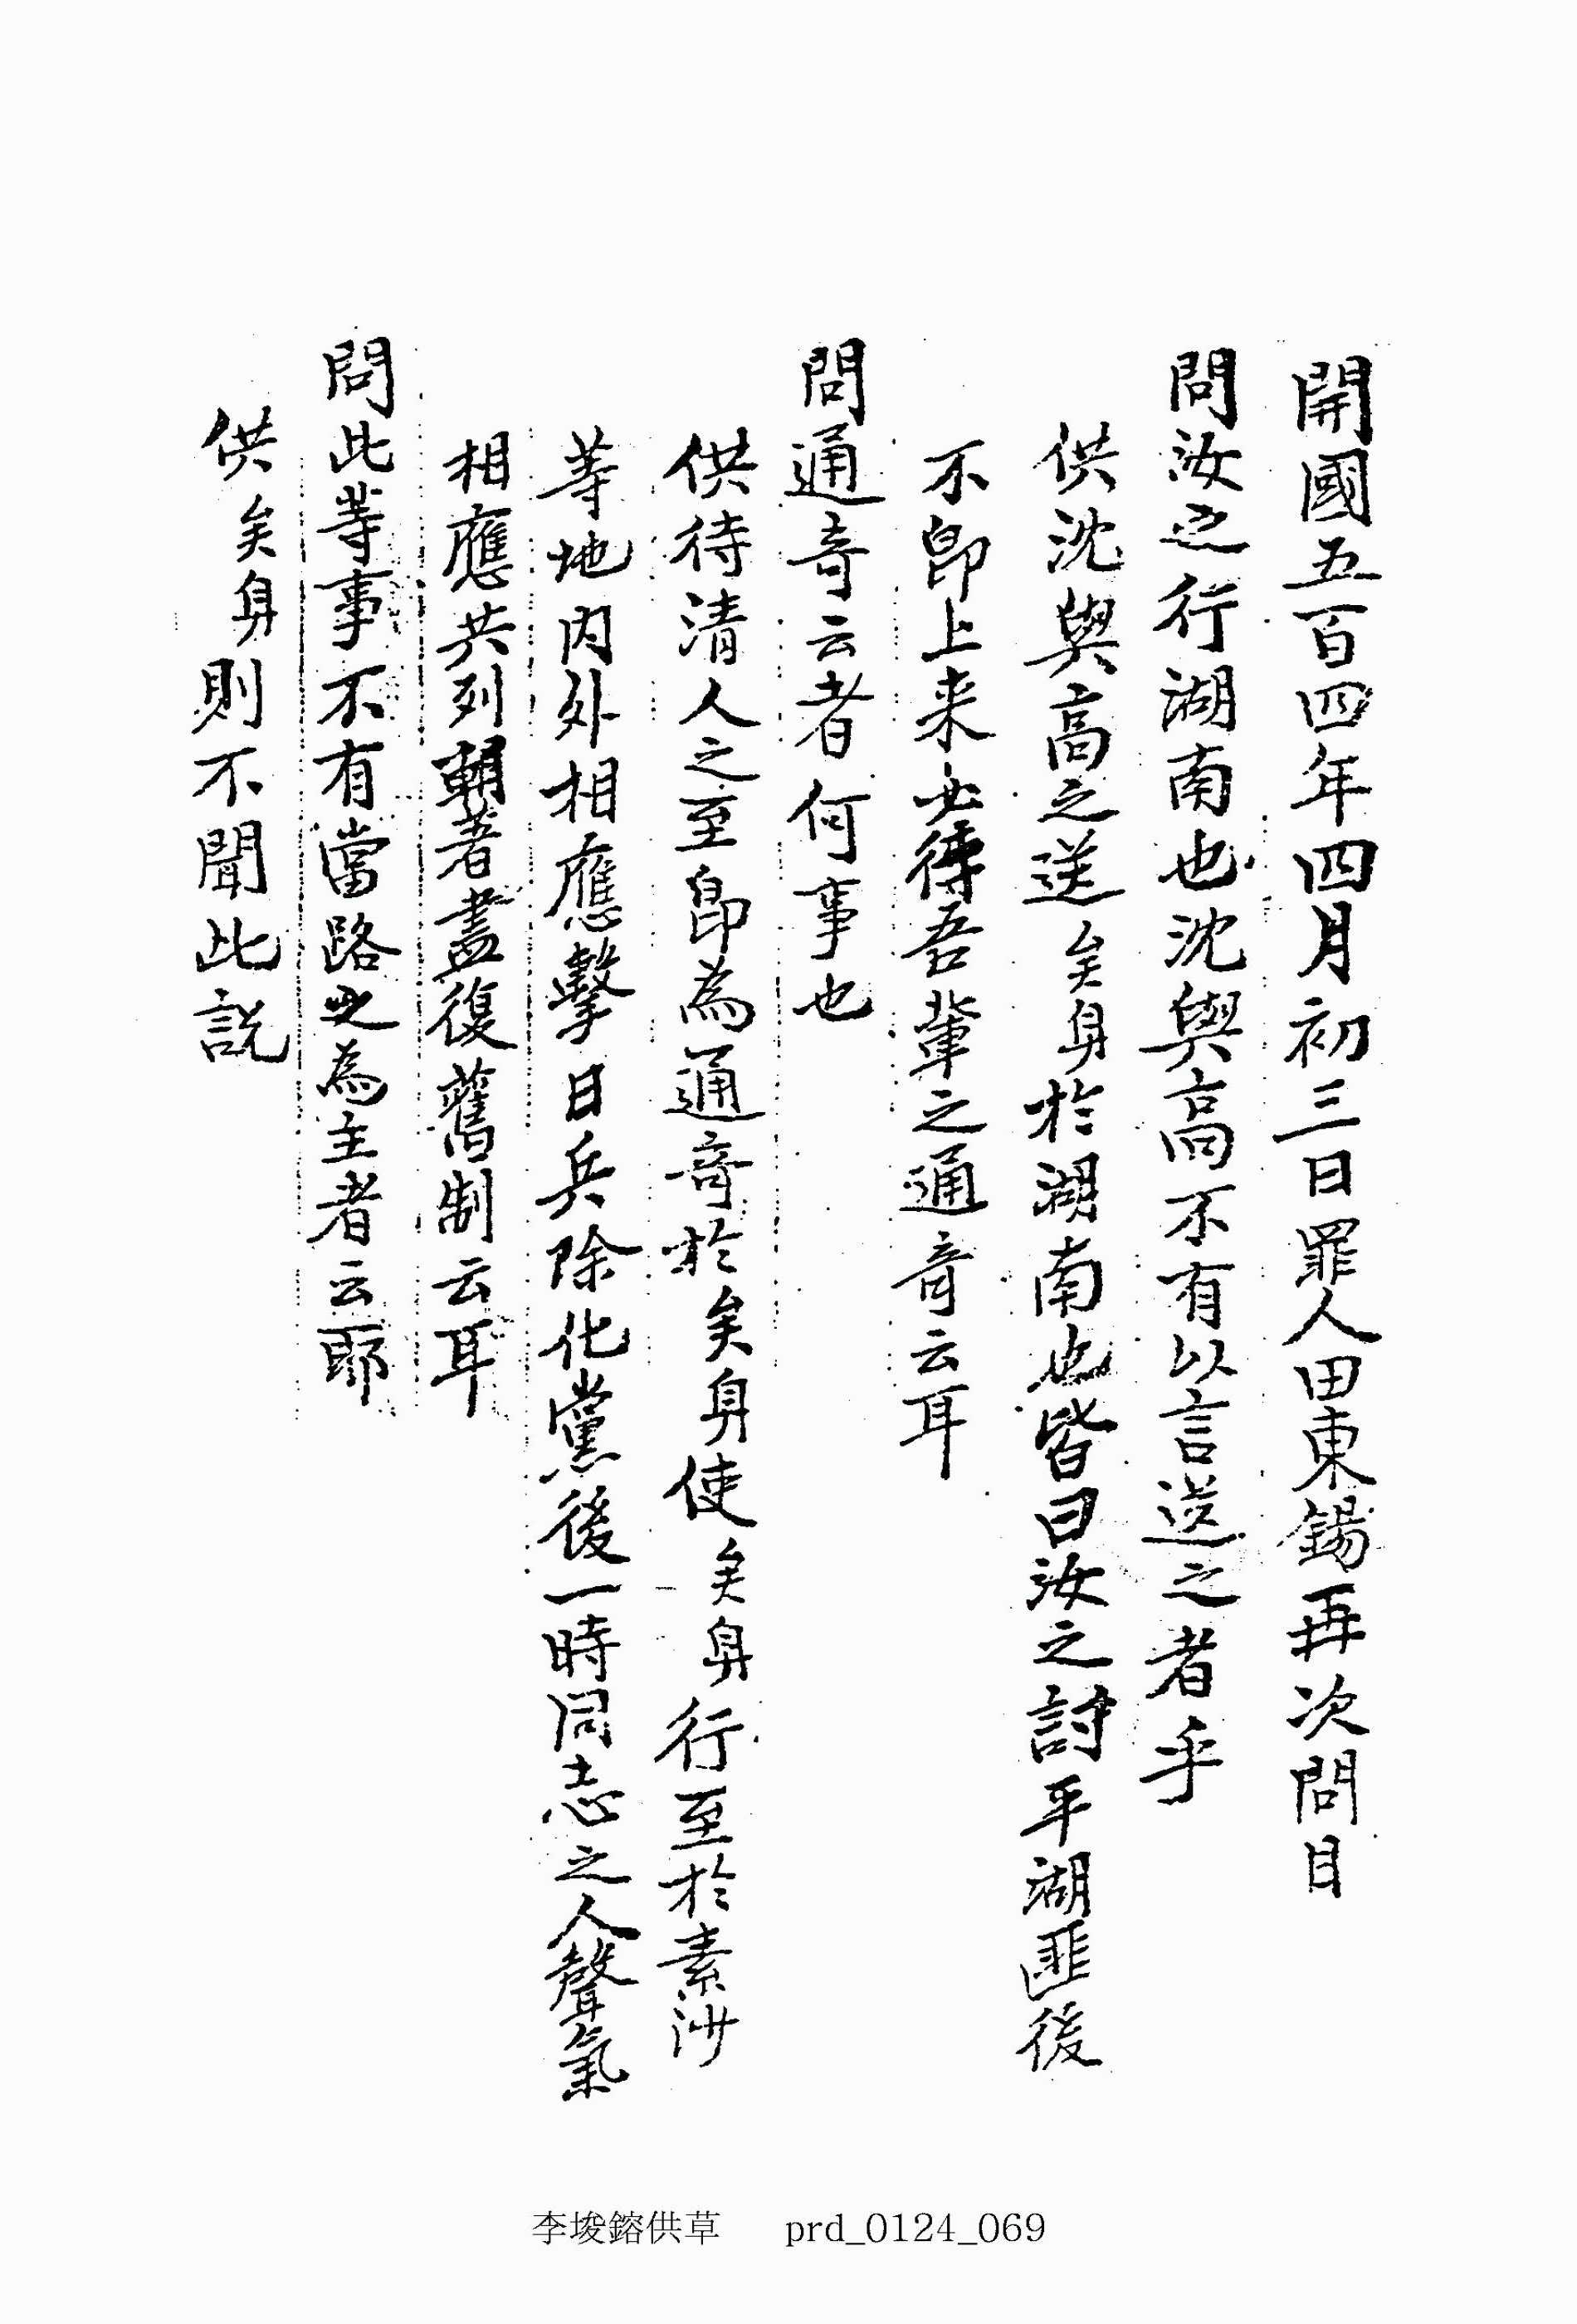 開國五百四年四月初三日罪人田東錫再次問目
問汝之行湖南也沈與高不有以言送之者乎
供沈與高之送矣身於湖南也皆曰汝之討平湖匪後
不卽上来必待吾輩之通奇云耳
問通奇云者何事也
供待清人之至卽為通奇於矣身使矣身行至於素沙
等地内外相應擊日兵除化黨後一時同志之人聲氣
相應共列朝著盡復舊制云耳
問此等事不有當路之為主者云耶
供矣身則不聞此説
李埈鎔供草 prd_0124_069